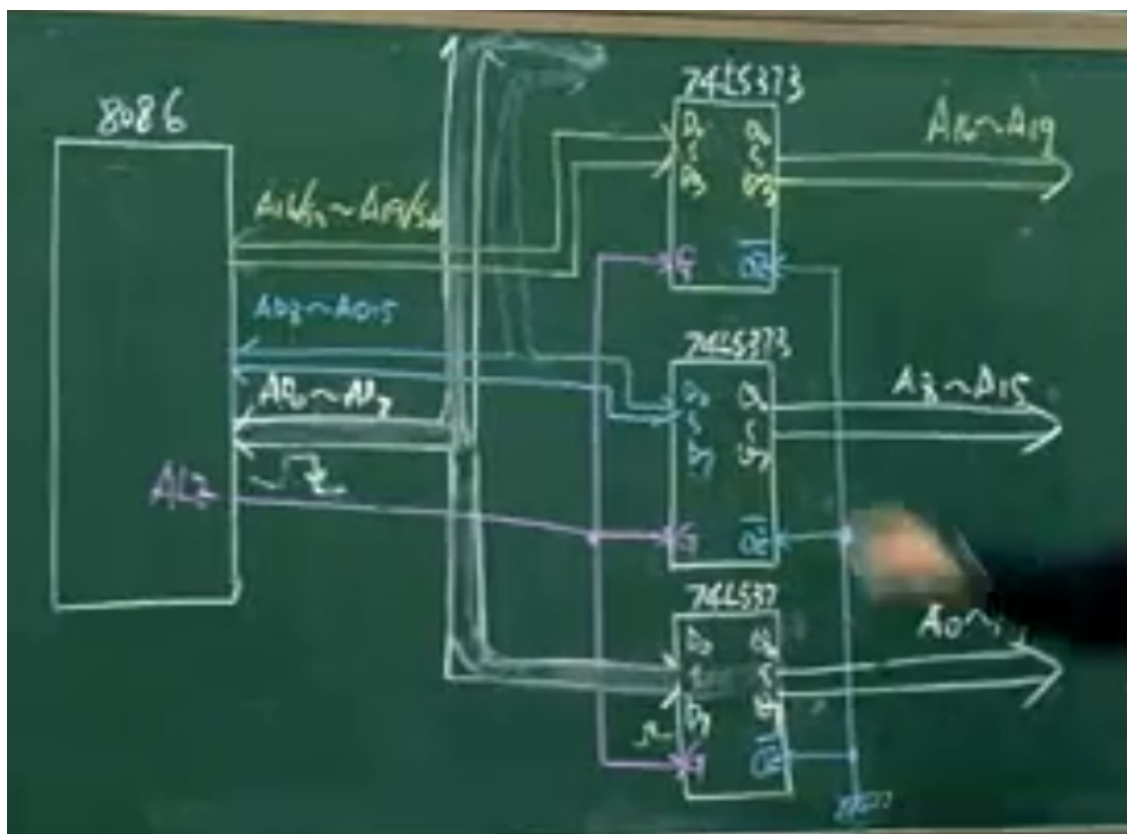 8086
A16/S3~A19/S6
AD8~AD15
AD0~AD7
ALE
74LS373
D0
D3
Q0
Q3
G
OE
A16~A19
74LS373
D0
D7
Q0
Q7
G
OE
A8~A15
74LS37
D0
D7
Q0
Q7
G
OE
A0~